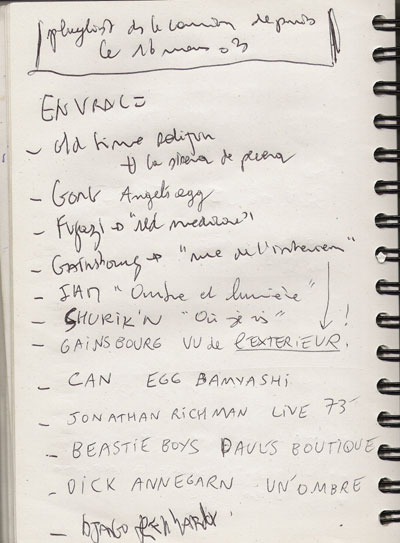 playlist ds le camion depuis
le 16 mars 03
EN VRAC =
- old time Religion
+ la sirena de pecera
- Gong Angels egg
- Fugazi → "red medecine"
- Gainsbourg → "vue de l'interieur"
- IAM "Ombre et lumière"
- SHURIK'N "Où je vis"
- GAINSBOURG VU de L'EXTERIEUR !
- CAN EGG BAMYASHI
- JONATHAN RICHMAN LIVE 73'
- BEASTIE BOYS PAUL'S BOUTIQUE
- DICK ANNEGARN UN'OMBRE
- DJANGO REINHARDT